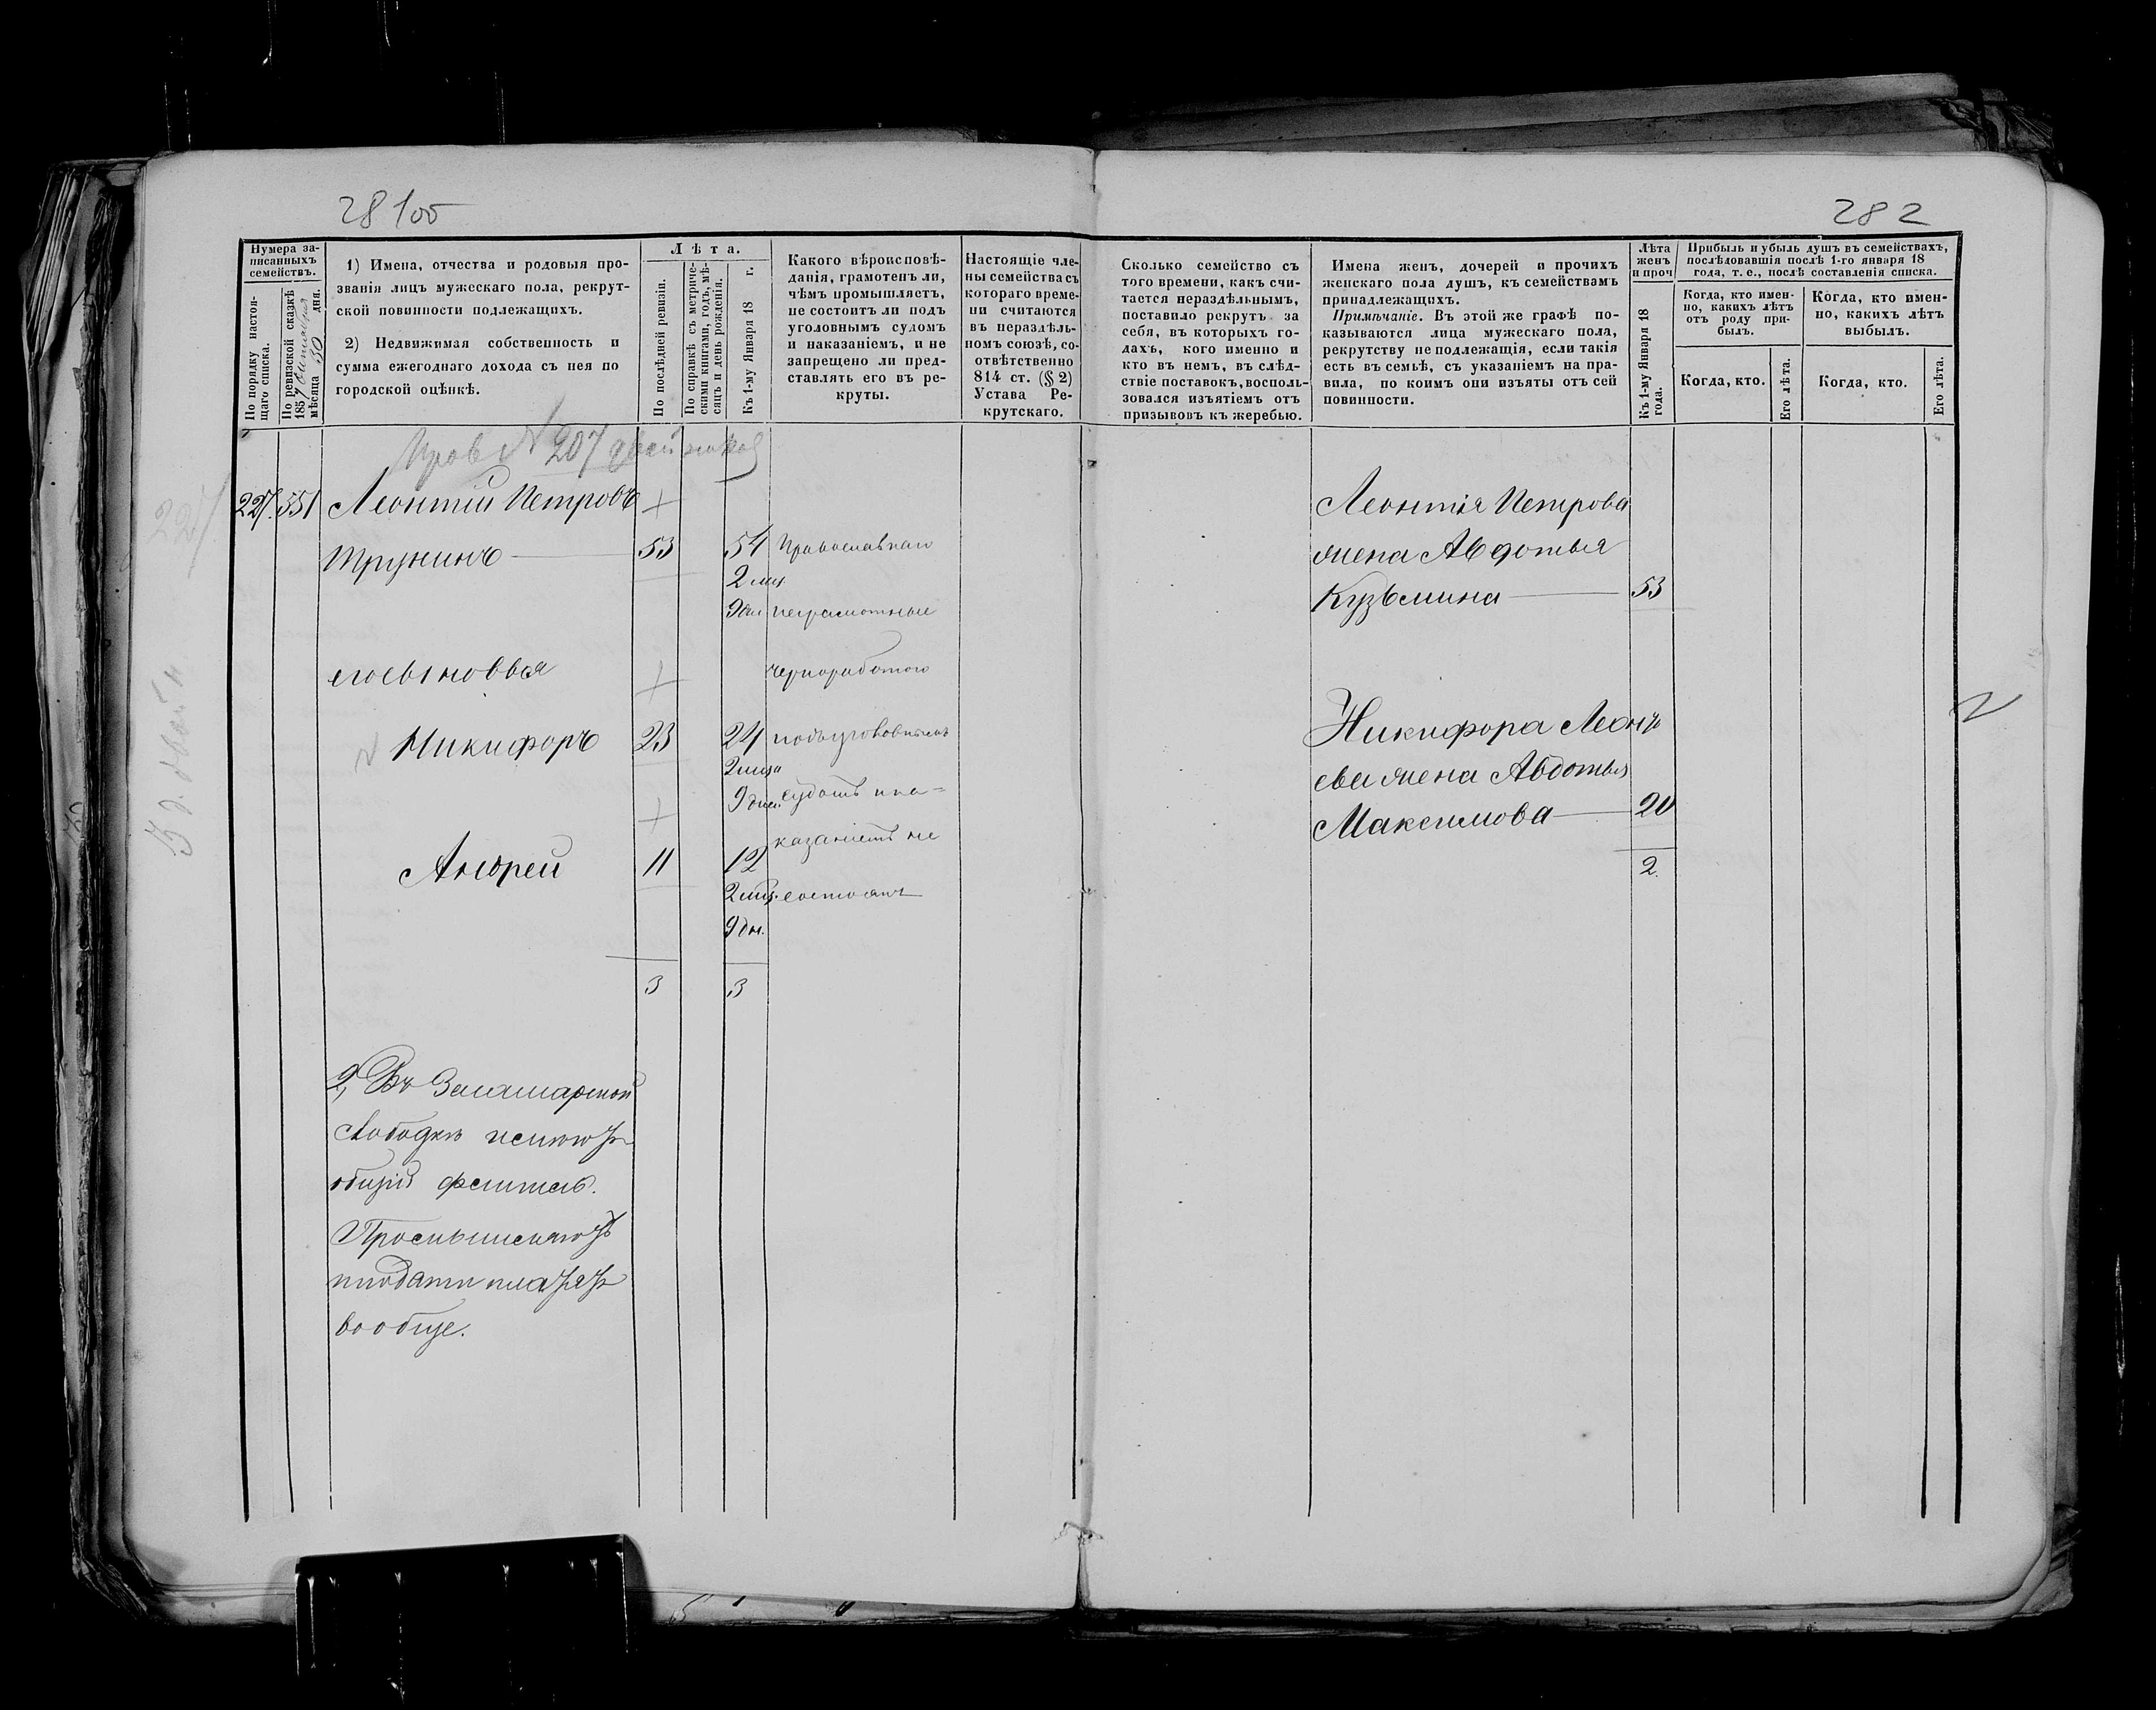 28100
282
Нумера за-
писанныхъ
семействъ.
По порядку настоя-
щаго списка.
По ревизской сказкѣ
1857
мѣсяца 30 дня.
1) Имена, отчества и родовыя про-
званія лицъ мужескаго пола, рекрут-
ской повинности подлежащихъ.
2) Недвижимая собственность и
сумма ежегоднаго дохода съ нея по
городской оцѣнкѣ.
Лѣта.
По послѣдней ревизіи.
По справкѣ съ метриче-
скими книгами, годъ, мѣ-
сяцъ и день рожденія.
Къ 1-му Января 18 г.
Какого вѣроисповѣ-
данія, грамотенъ ли,
чѣмъ промышляетъ,
не состоитъ ли подъ
уголовнымъ судомъ
и наказаніемъ, и не
запрещено ли пред-
ставлять его въ ре-
круты.
Настоящіе чле-
ны семейства съ
котораго време-
ни считаются
въ нераздѣль-
номъ союзѣ, со-
отвѣтственно
814 ст. (§ 2)
Устава Ре-
крутскаго.
Сколько семейство съ
того времени, какъ счи-
тается нераздѣльнымъ,
поставило рекрутъ за
себя, въ которыхъ го-
дахъ, кого именно и
кто въ немъ, въ слѣд-
ствіе поставокъ, восполь-
зовался изъятіемъ отъ
призывовъ къ жеребью.
Имена женъ, дочерей и прочихъ
женскаго пола душъ, къ семействамъ
принадлежащихъ.
Примѣчаніе. Въ этой же графѣ по-
казываются лица мужескаго пола,
рекрутству неподлежащія, если такія
есть въ семьѣ, съ указаніемъ на пра-
вила, по коимъ они изъяты отъ сей
повинности.
Лѣта
женъ
и проч
Къ 1-му Января 18
года.
Прибыль и убыль душъ въ семействахъ,
послѣдовавшія послѣ 1-го января 18
года, т. е., послѣ составленія списка.
Когда, кто имен-
но, какихъ лѣтъ
отъ роду при-
былъ.
Когда, кто имен-
но, какихъ лѣтъ
выбылъ.
Когда, кто.
Его лѣта.
Когда, кто.
Его лѣта.
№ 207
227
227. 551 Леонтій Петровъ
Трунинъ 53 54 Православнаго
2 мца
9 дн неграмотные
его сыновья чернорабочаго
Никифоръ 23 24 подъ уголовнымъ
2 мца
9 дней судомъ и на-
казаніемъ не
Андрей 11 12
2 мца. состоятъ
9 дн.
3 3
2, Въ
Слободкѣ имѣютъ
общій
подати платятъ
вообще.
Леонтія Петрова
жена Авдотья
Кузьмина 53
Никифора Леонть
ева жена Авдотья
Максимова 20
2.